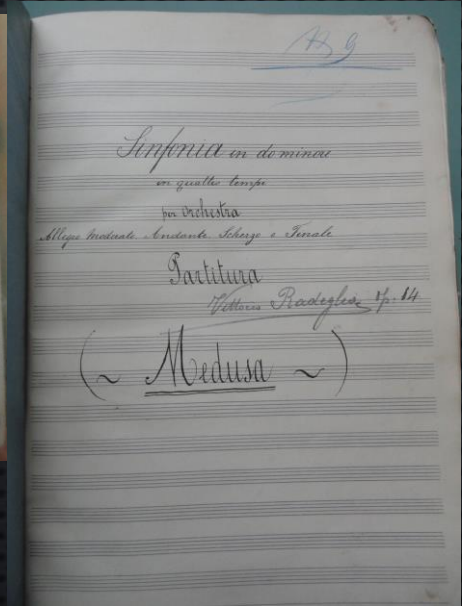 Sinfonia in do minore
in quattro tempi
per Orchestra
Allegro moderato. Andante. Scherzo e Finale
Partitura
Vittorio Radeglia op. 14.
(~ Medusa ~)